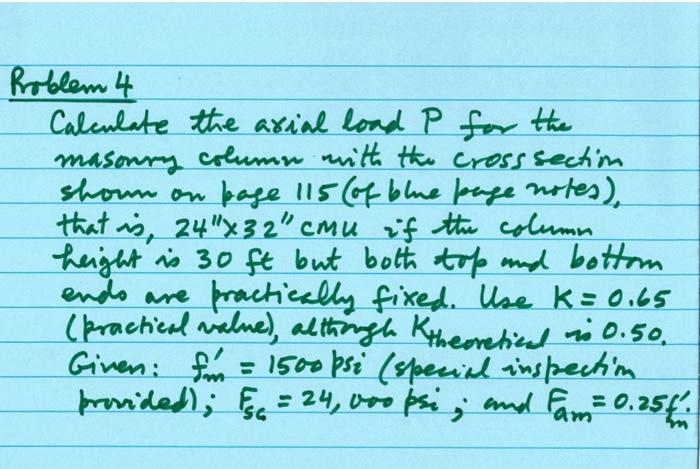 Problem 4
Calculate the axial load P for the
masonry column with the cross section
shown on page 115 (of blue page notes),
that is, 24"x32" CMU if the column
height is 30 ft but both top and bottom
ends are practically fixed. Use K = 0.65
(practical value), although Ktheoretical is 0.50.
Given: f'm = 1500 psi (special inspection
provided); Fsc = 24,000 psi; and Fam = 0.25f'm.